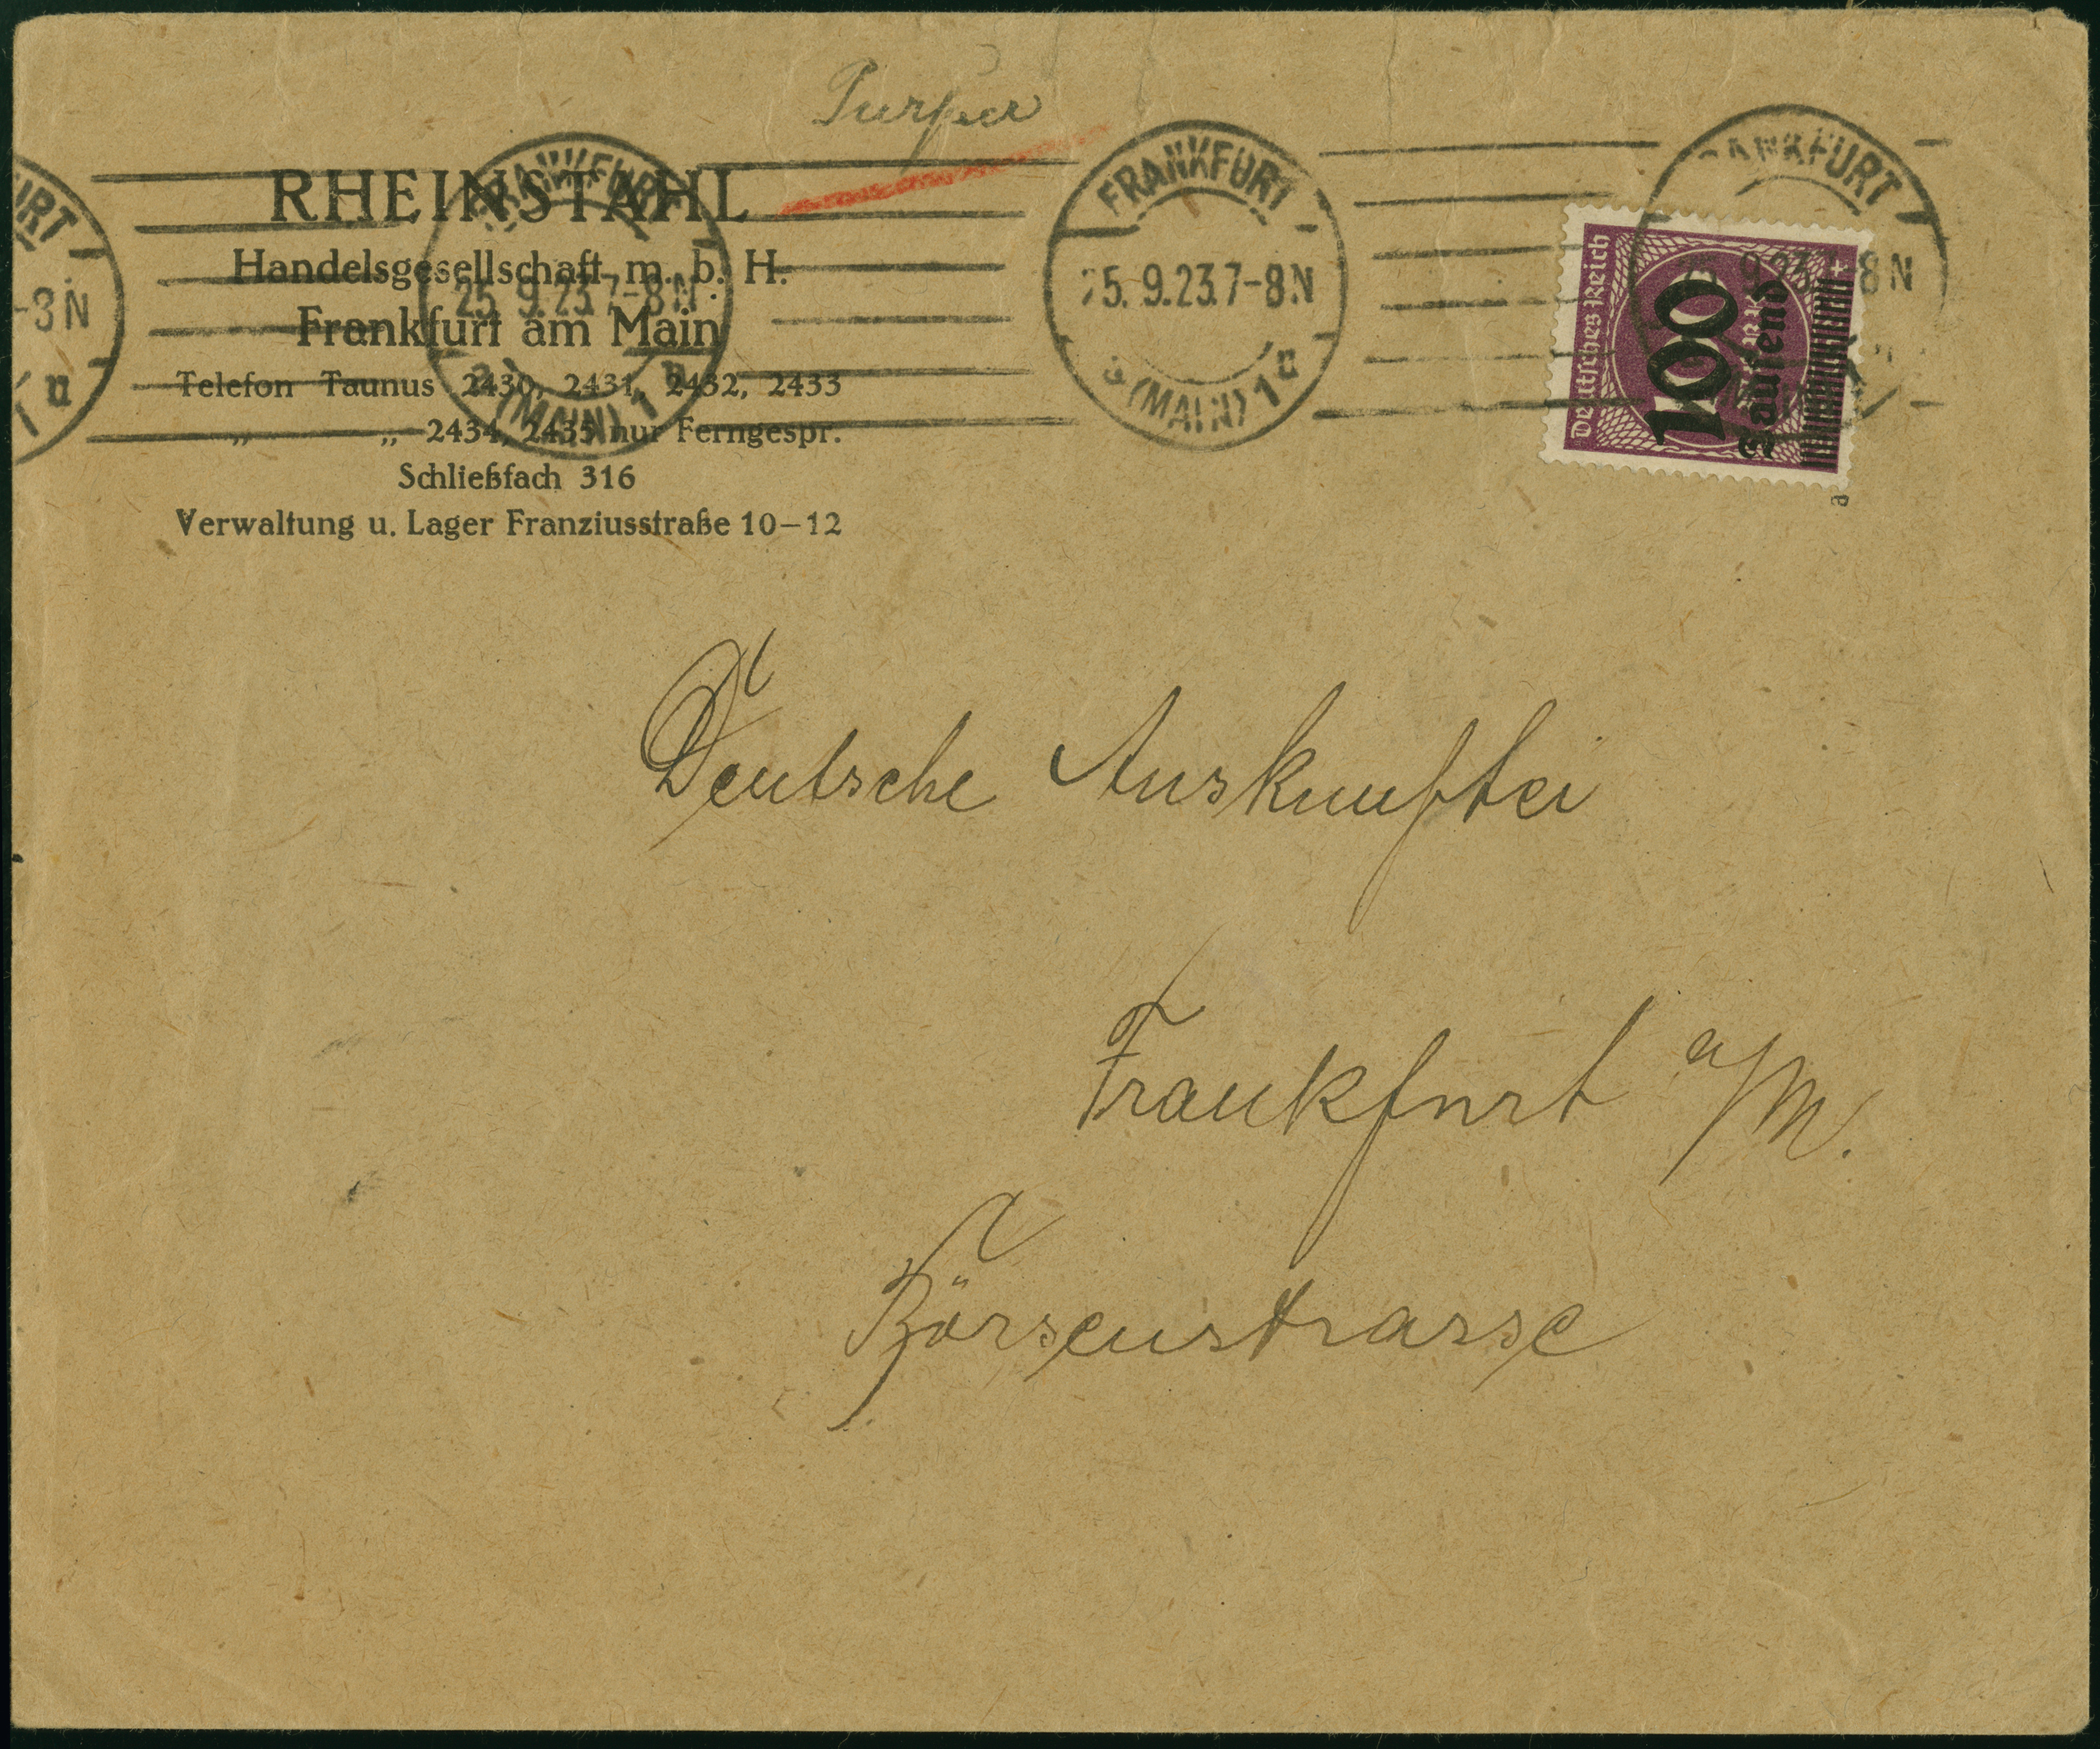 RHEINSTAHL
Handelsgesellschaft m. b. H.
Frankfurt am Main
Telefon Taunus 2430, 2431, 2432, 2433
„ „ 2434, 2435 nur Ferngespr.
Schließfach 316
Verwaltung u. Lager Franziusstraße 10–12
URT
-3N
FRANKFURT
25.9.23.7-8N
(MAIN) 1
FRANKFURT
25.9.23.7-8N
(MAIN) 1
ANKFURT
9.23. 8N
Deutsches Reich
100
Tausend
Deutsche Auskunftei
Frankfurt a/M.
Börsenstrasse